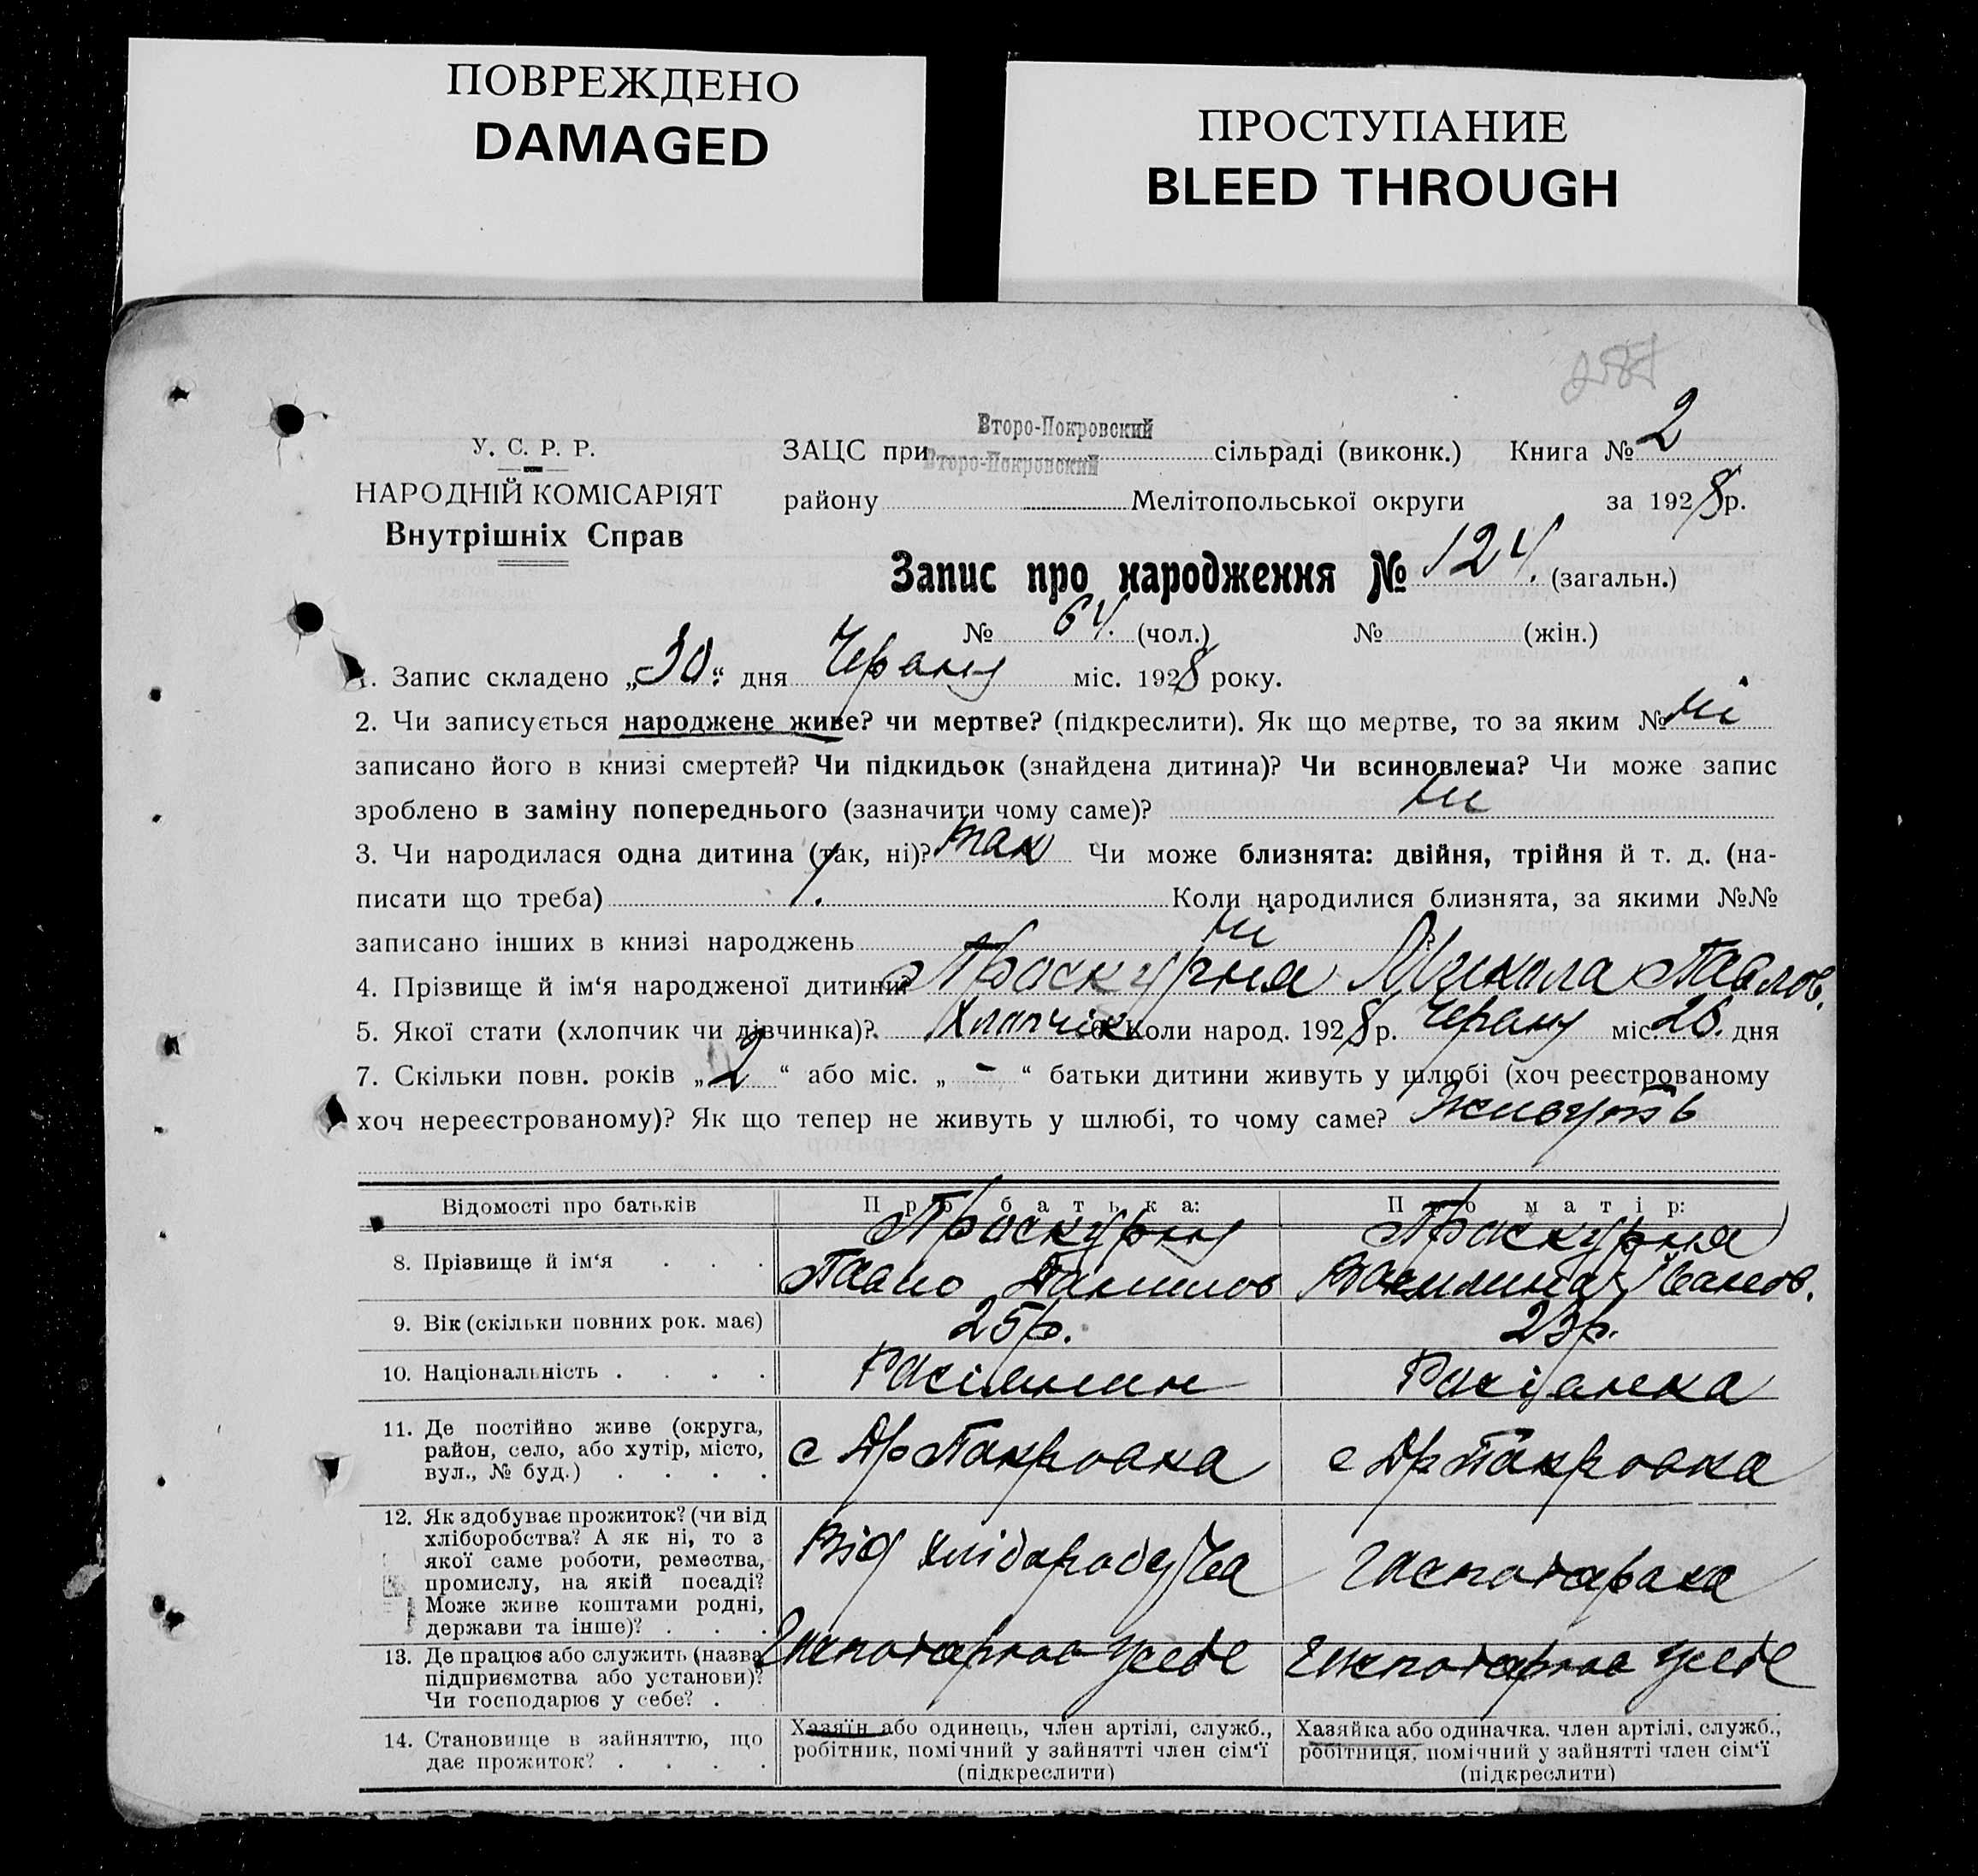 ПОВРЕЖДЕНО
DAMAGED
ПРОСТУПАНИЕ
BLEED THROUGH
У. С. Р. Р.
НАРОДНІЙ КОМІСАРІЯТ
Внутрішніх Справ
Второ-Покровский
ЗАЦС при Второ-Покровский сільраді (виконк.) Книга № 2
району Мелітопольської округи за 1928 р.
Запис про народження № 124. (загальн.)
№ 64. (чол.) № (жін.)
1. Запис складено „30“ дня Червня міс. 1928 року.
2. Чи записується народжене живе? чи мертве? (підкреслити). Як що мертве, то за яким № ні
записано його в книзі смертей? Чи підкидьок (знайдена дитина)? Чи всиновлена? Чи може запис
зроблено в заміну попереднього (зазначити чому саме)? ні
3. Чи народилася одна дитина (так, ні)? так Чи може близнята: двійня, трійня й т. д. (на-
писати що треба) 1. Коли народилися близнята, за якими №№
записано інших в книзі народжень ні
4. Прізвище й ім‘я народженої дитини? Проскурня Микола Павлов.
5. Якої стати (хлопчик чи дівчинка)? Хлопчік 6. Коли народ. 1928 р. Червня міс. 28. дня
7. Скільки повн. років „2“ або міс. „-“ батьки дитини живуть у шлюбі (хоч реєстрованому
хоч нереєстрованому)? Як що тепер не живуть у шлюбі, то чому саме? Живуть
Відомості про батьків Про батька: Про матір:
8. Прізвище й ім‘я . . . Проскурня Павло Данилов Проскурня Василина Іванов.
9. Вік (скільки повних рок. має) 25 р. 23 р.
10. Національність . . . . Росіянин Росіянка
11. Де постійно живе (округа,
район, село, або хутір, місто,
вул., № буд.) . . . . с Др Покровка с Др Покровка
12. Як здобуває прожиток? (чи від
хліборобства? А як ні, то з
якої саме роботи, ремества,
промислу, на якій посаді?
Може живе коштами родні,
держави та інше)? . . . Від хліборобства
13. Де працює або служить (назва
підприємства або установи)?
Чи господарює у себе? . . Господарює у себе Господарює у себе
14. Становище в зайняттю, що
дає прожиток? . . . .
Хазяїн або одинець, член артілі, служб.,
робітник, помічний у зайнятті член сім‘ї
(підкреслити)
Хазяйка або одиначка, член артілі, служб.,
робітниця, помічний у зайнятті член сім‘ї
(підкреслити)